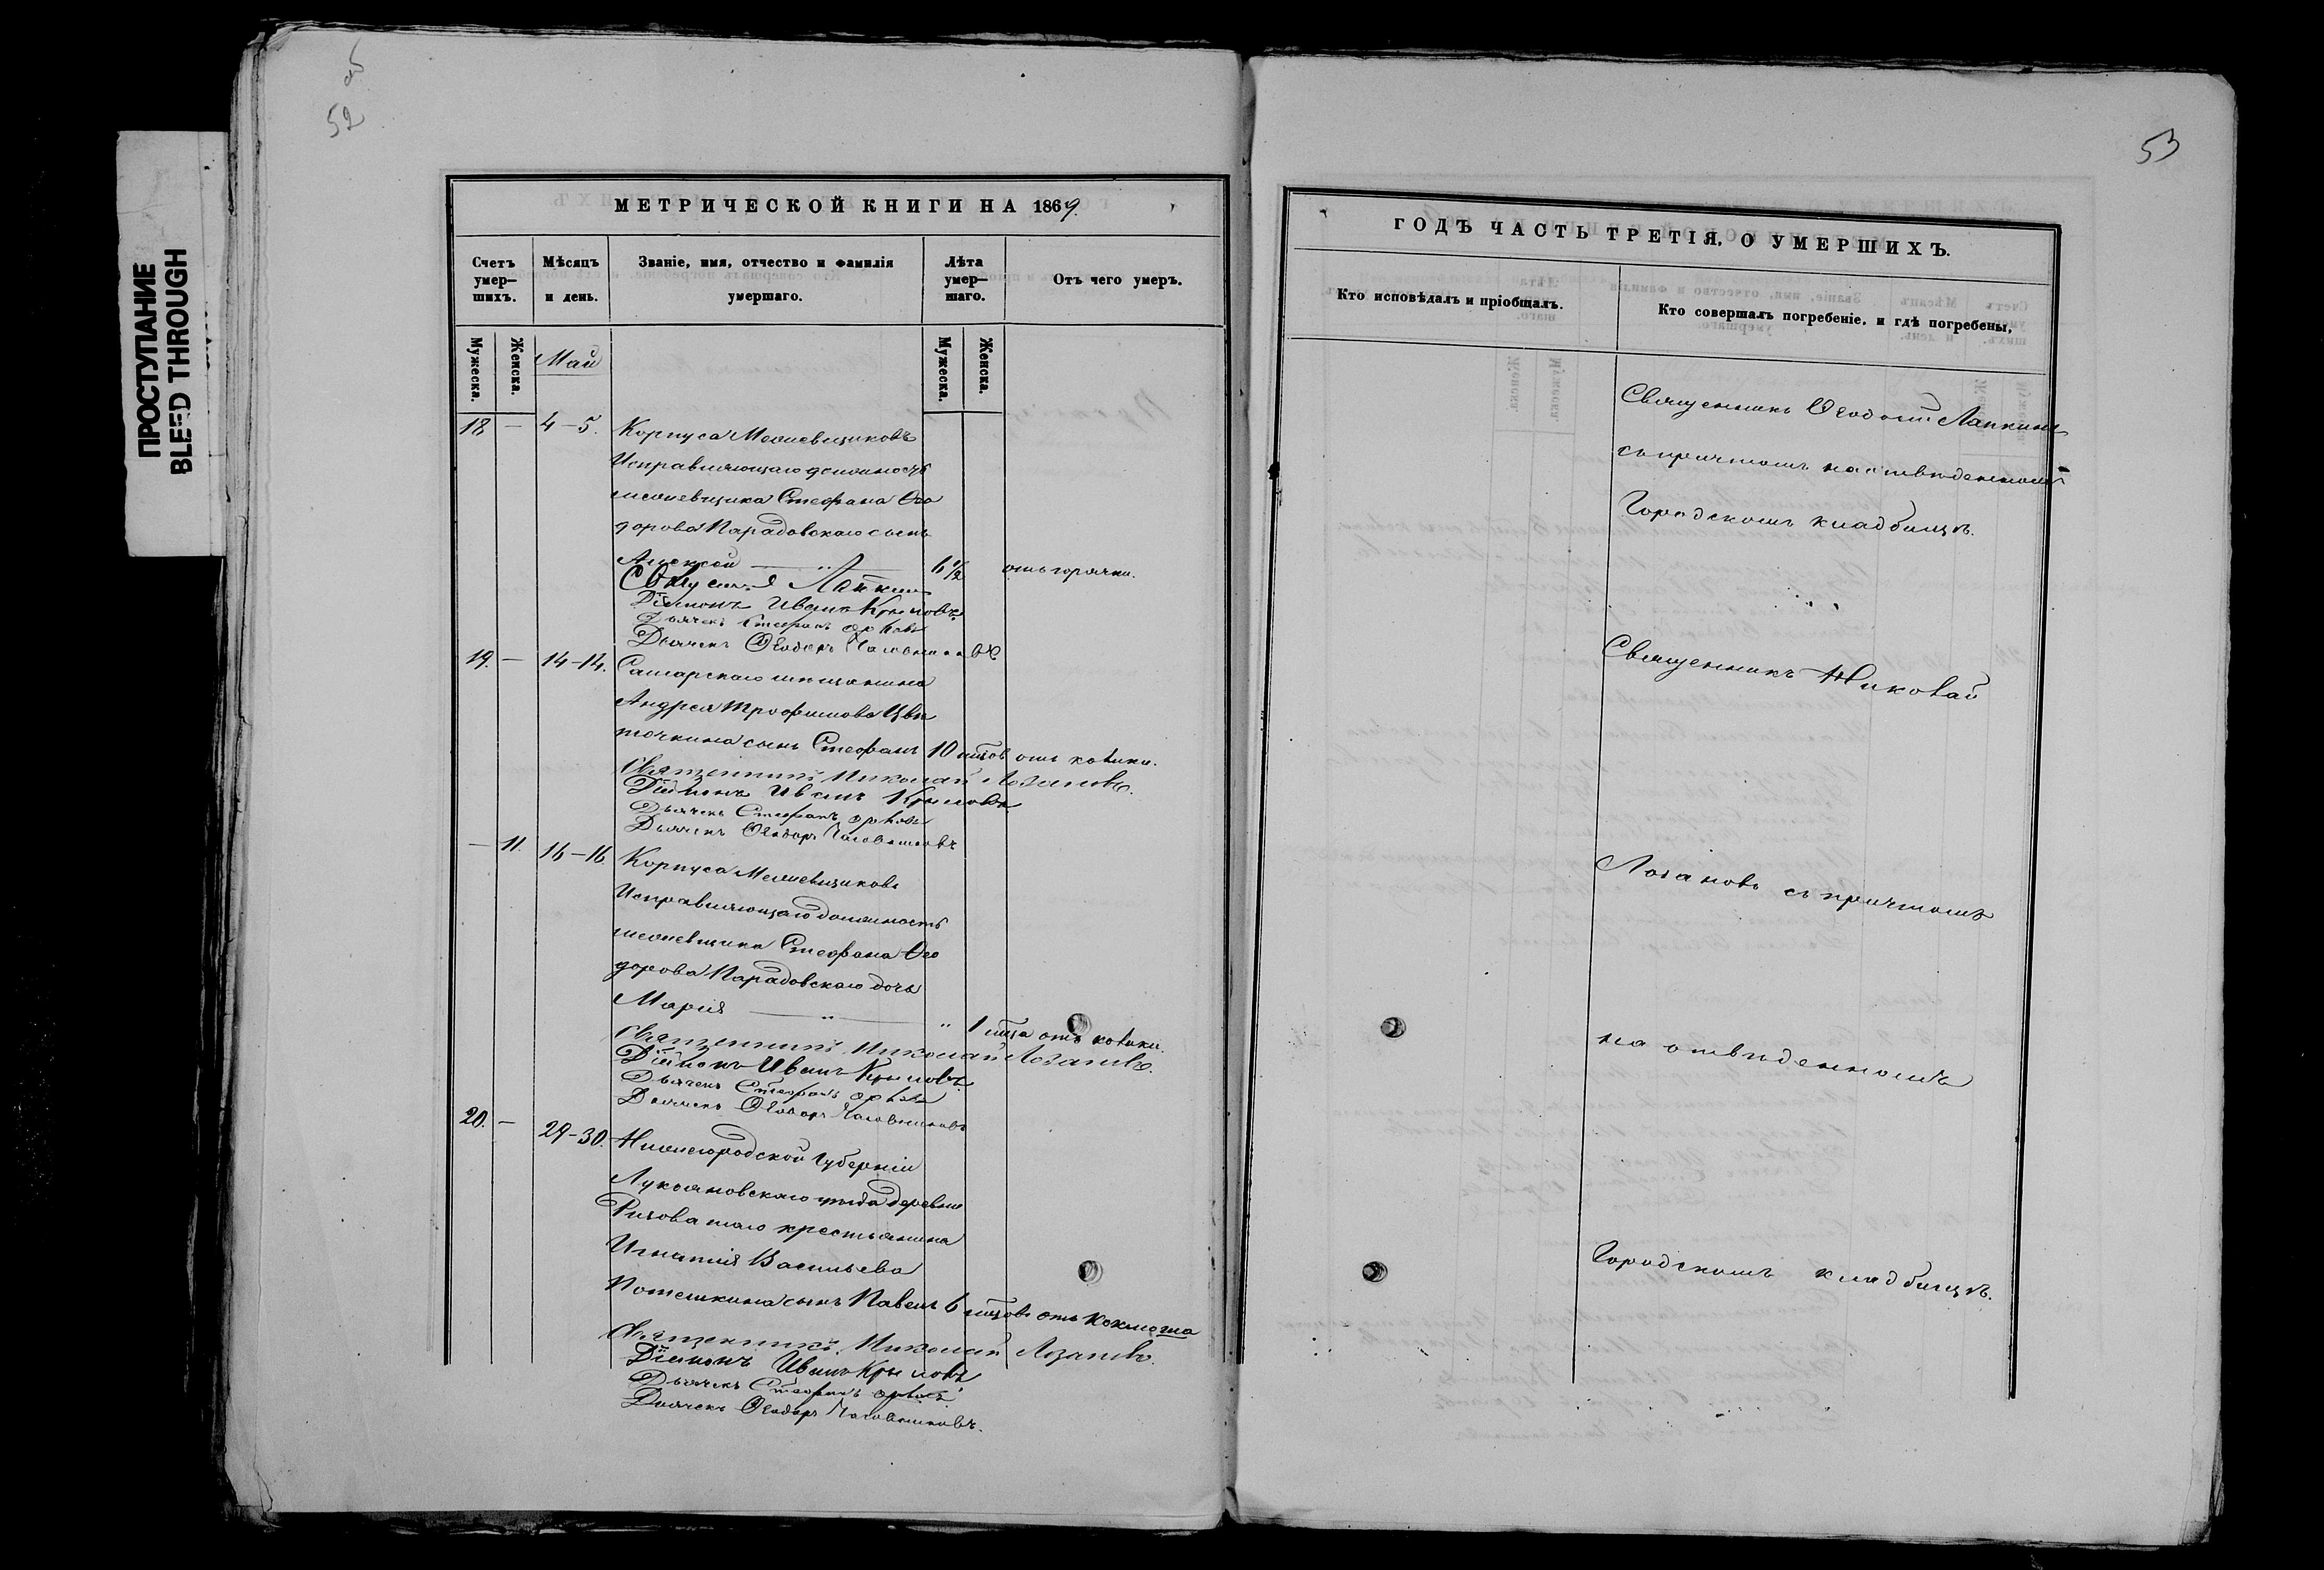 52 об
ПРОСТУПАНИЕ
BLEED THROUGH
МЕТРИЧЕСКОЙ КНИГИ НА 1869.
Счетъ умер—шихъ.
Мѣсяцъ и день.
Званіе, имя, отчество и фамилія умершаго.
Лѣта умер—шаго.
Отъ чего умеръ.
Мужеска.
Женска.
Май
Мужеска.
Женска.
18 — 4–5. Корпуса Межевщиковъ
Исправляющаго должность
межевщика Стефана Ѳео
дорова Парадовскаго сынъ
Алексей — " — 6 1/2 отъ горячки.
Лапкин
Діаконъ Иванъ Крыловъ.
Дьячекъ Стефанъ Орловъ
Дьячекъ Ѳеодоръ Часовниковъ
19. — 14–14. Самарскаго мѣщанина
Андрея Трофимова Цвѣ
точкина сынъ Стефанъ 10 мцов отъ колики.
Священникъ Николай Лозановъ.
Діаконъ Иванъ Крыловъ
Дьячекъ Стефанъ Орловъ
Дьячекъ Ѳеодоръ Часовниковъ
— 11. 16–16. Корпуса Межевщиковъ
Исправляющаго должность
межевщика Стефана Ѳео
дорова Парадовскаго дочь
Марія — " — " 1 мца отъ колики.
Священникъ Николай Лозановъ.
Діаконъ Иванъ Крыловъ
Дьячекъ Стефанъ Орловъ
Дьячекъ Ѳеодоръ Часовниковъ
20. — 29–30. Нижегородской Губерніи
Лукояновскаго уѣзда деревни
крестьянина
Игнатія Васильева
Потешкина сынъ Павелъ 6 мцовъ отъ
Священникъ Николай Лозановъ.
Діаконъ Иванъ Крыловъ
Дьячекъ Стефанъ Орловъ
Дьячекъ Ѳеодоръ Часовниковъ.
53
ГОДЪ ЧАСТЬ ТРЕТІЯ, О УМЕРШИХЪ.
Кто исповѣдалъ и пріобщалъ.
Кто совершалъ погребеніе, и гдѣ погребены,
Священникъ Ѳеодоръ Лапкинъ
съ причтомъ на отведенномъ
Городскомъ кладбищѣ.
Священникъ Николай
Лозановъ съ причтомъ
на отведенномъ
Городскомъ кладбищѣ.